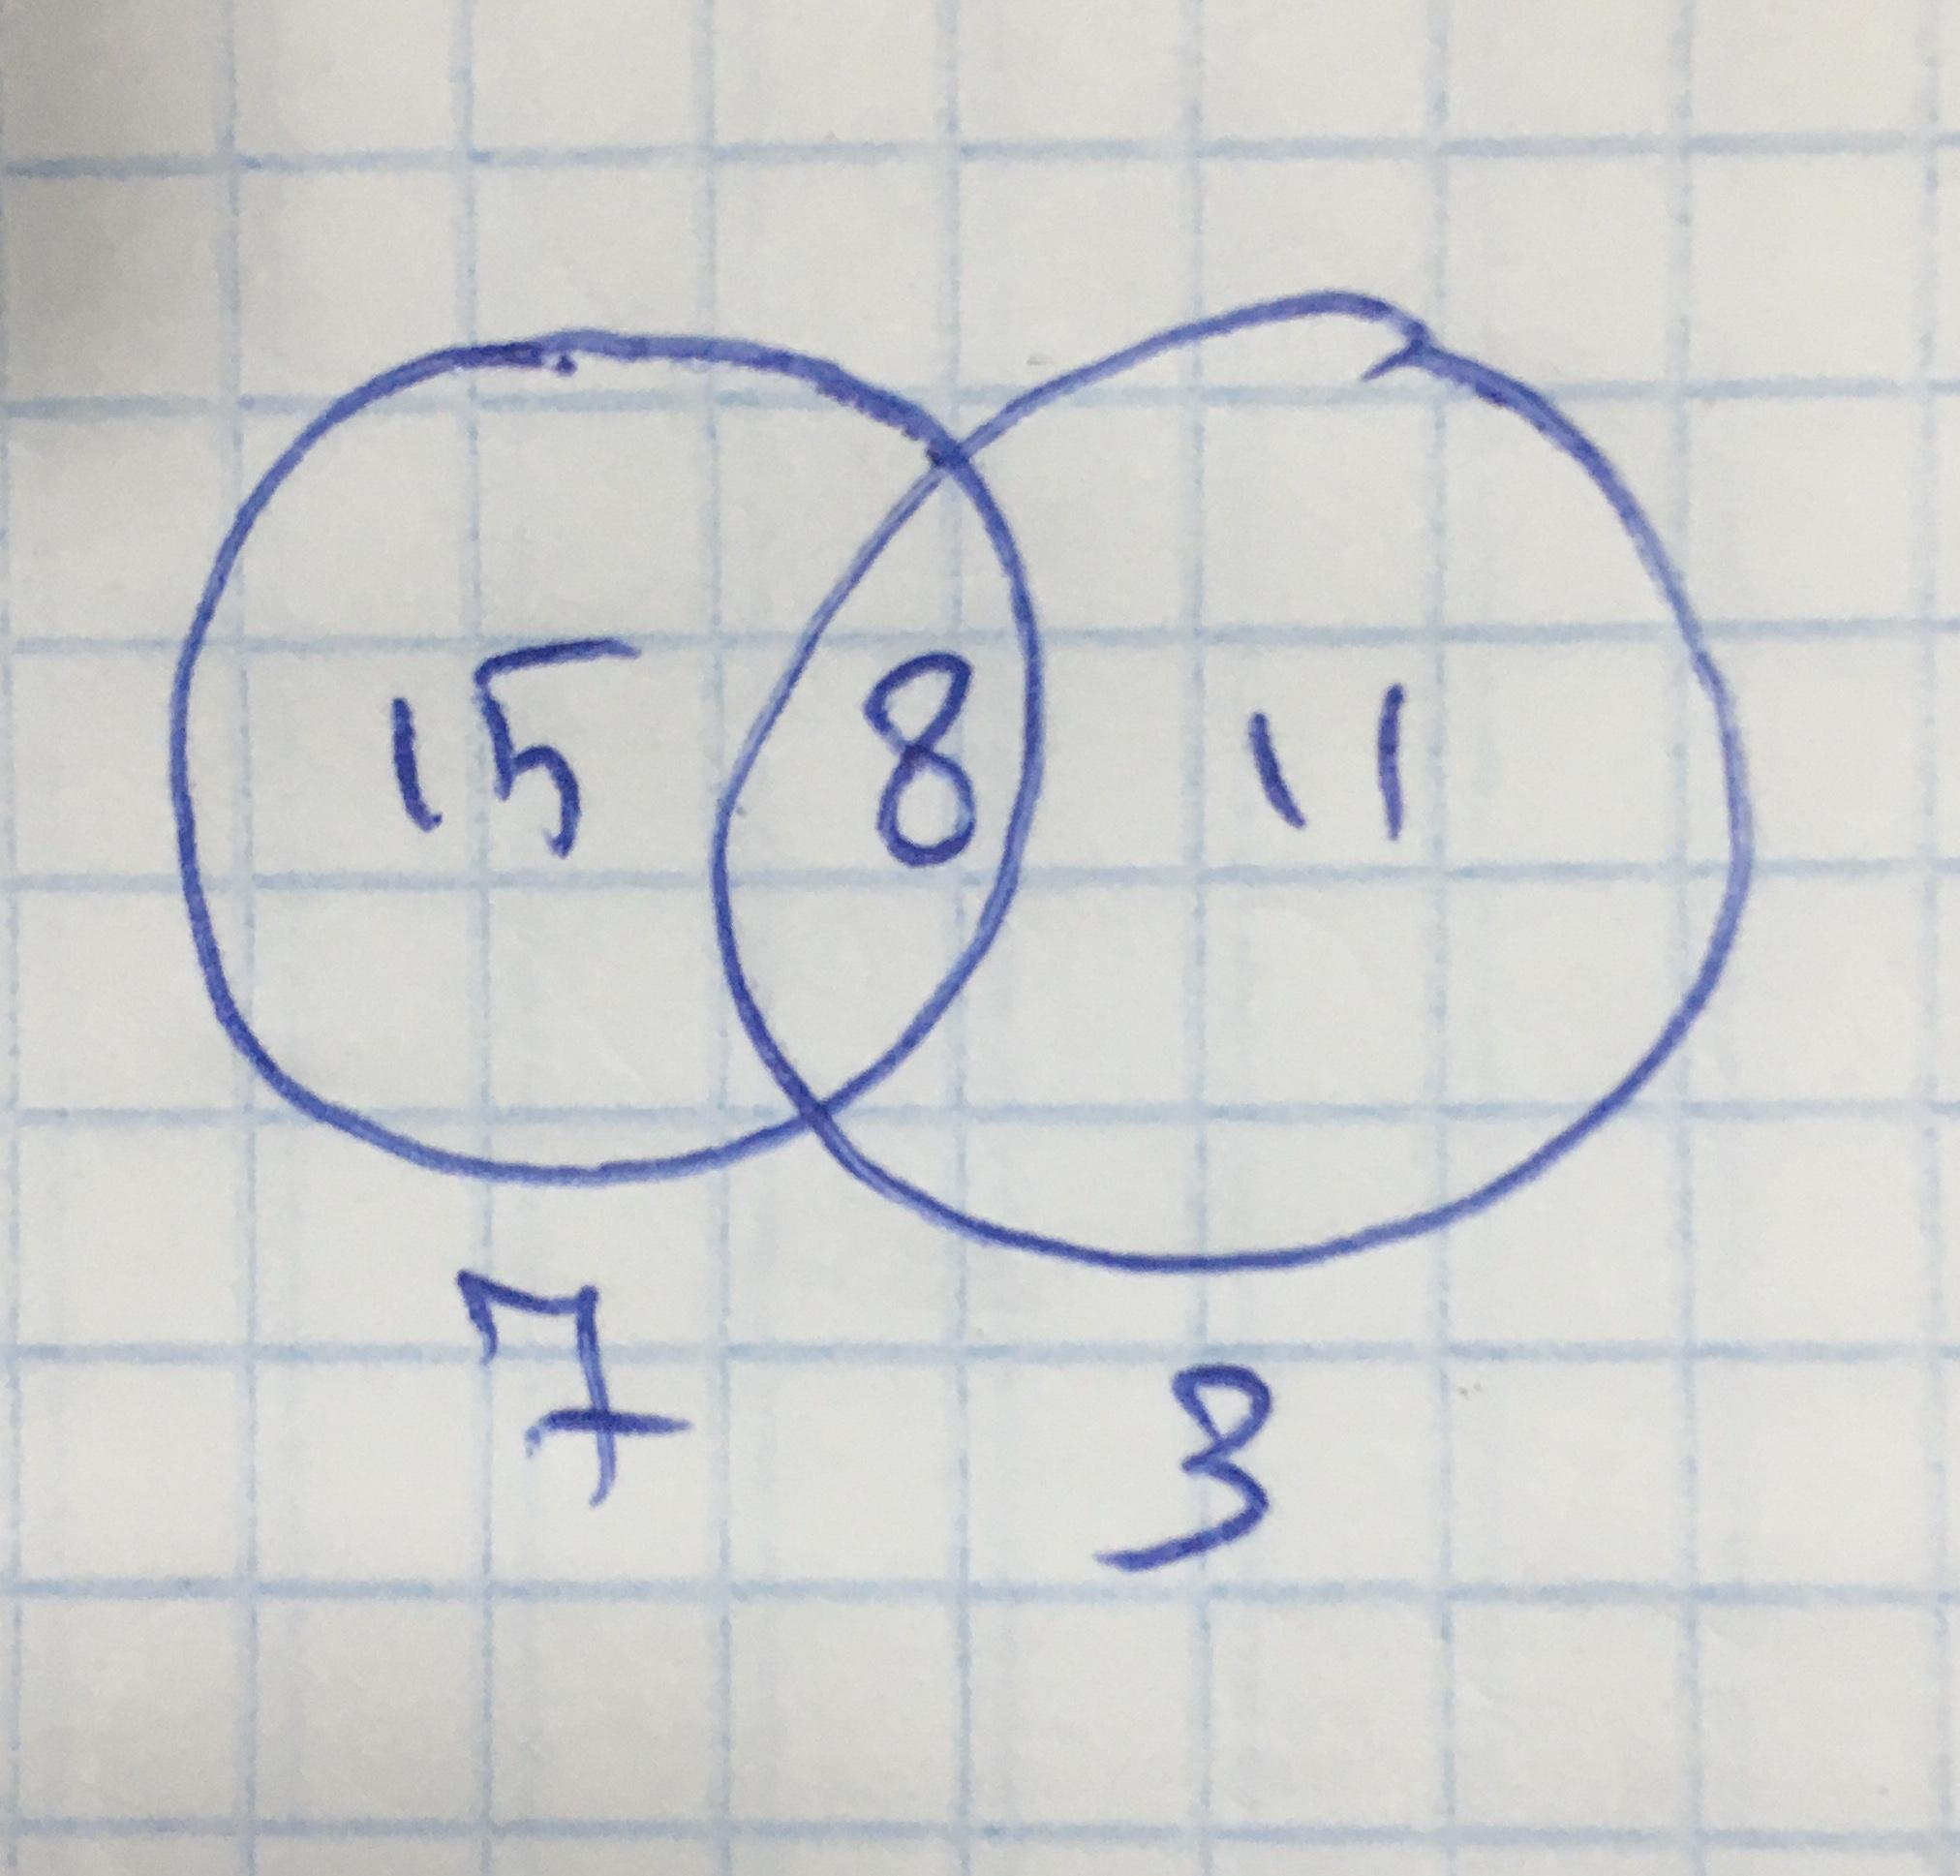 15 8 11
7
3